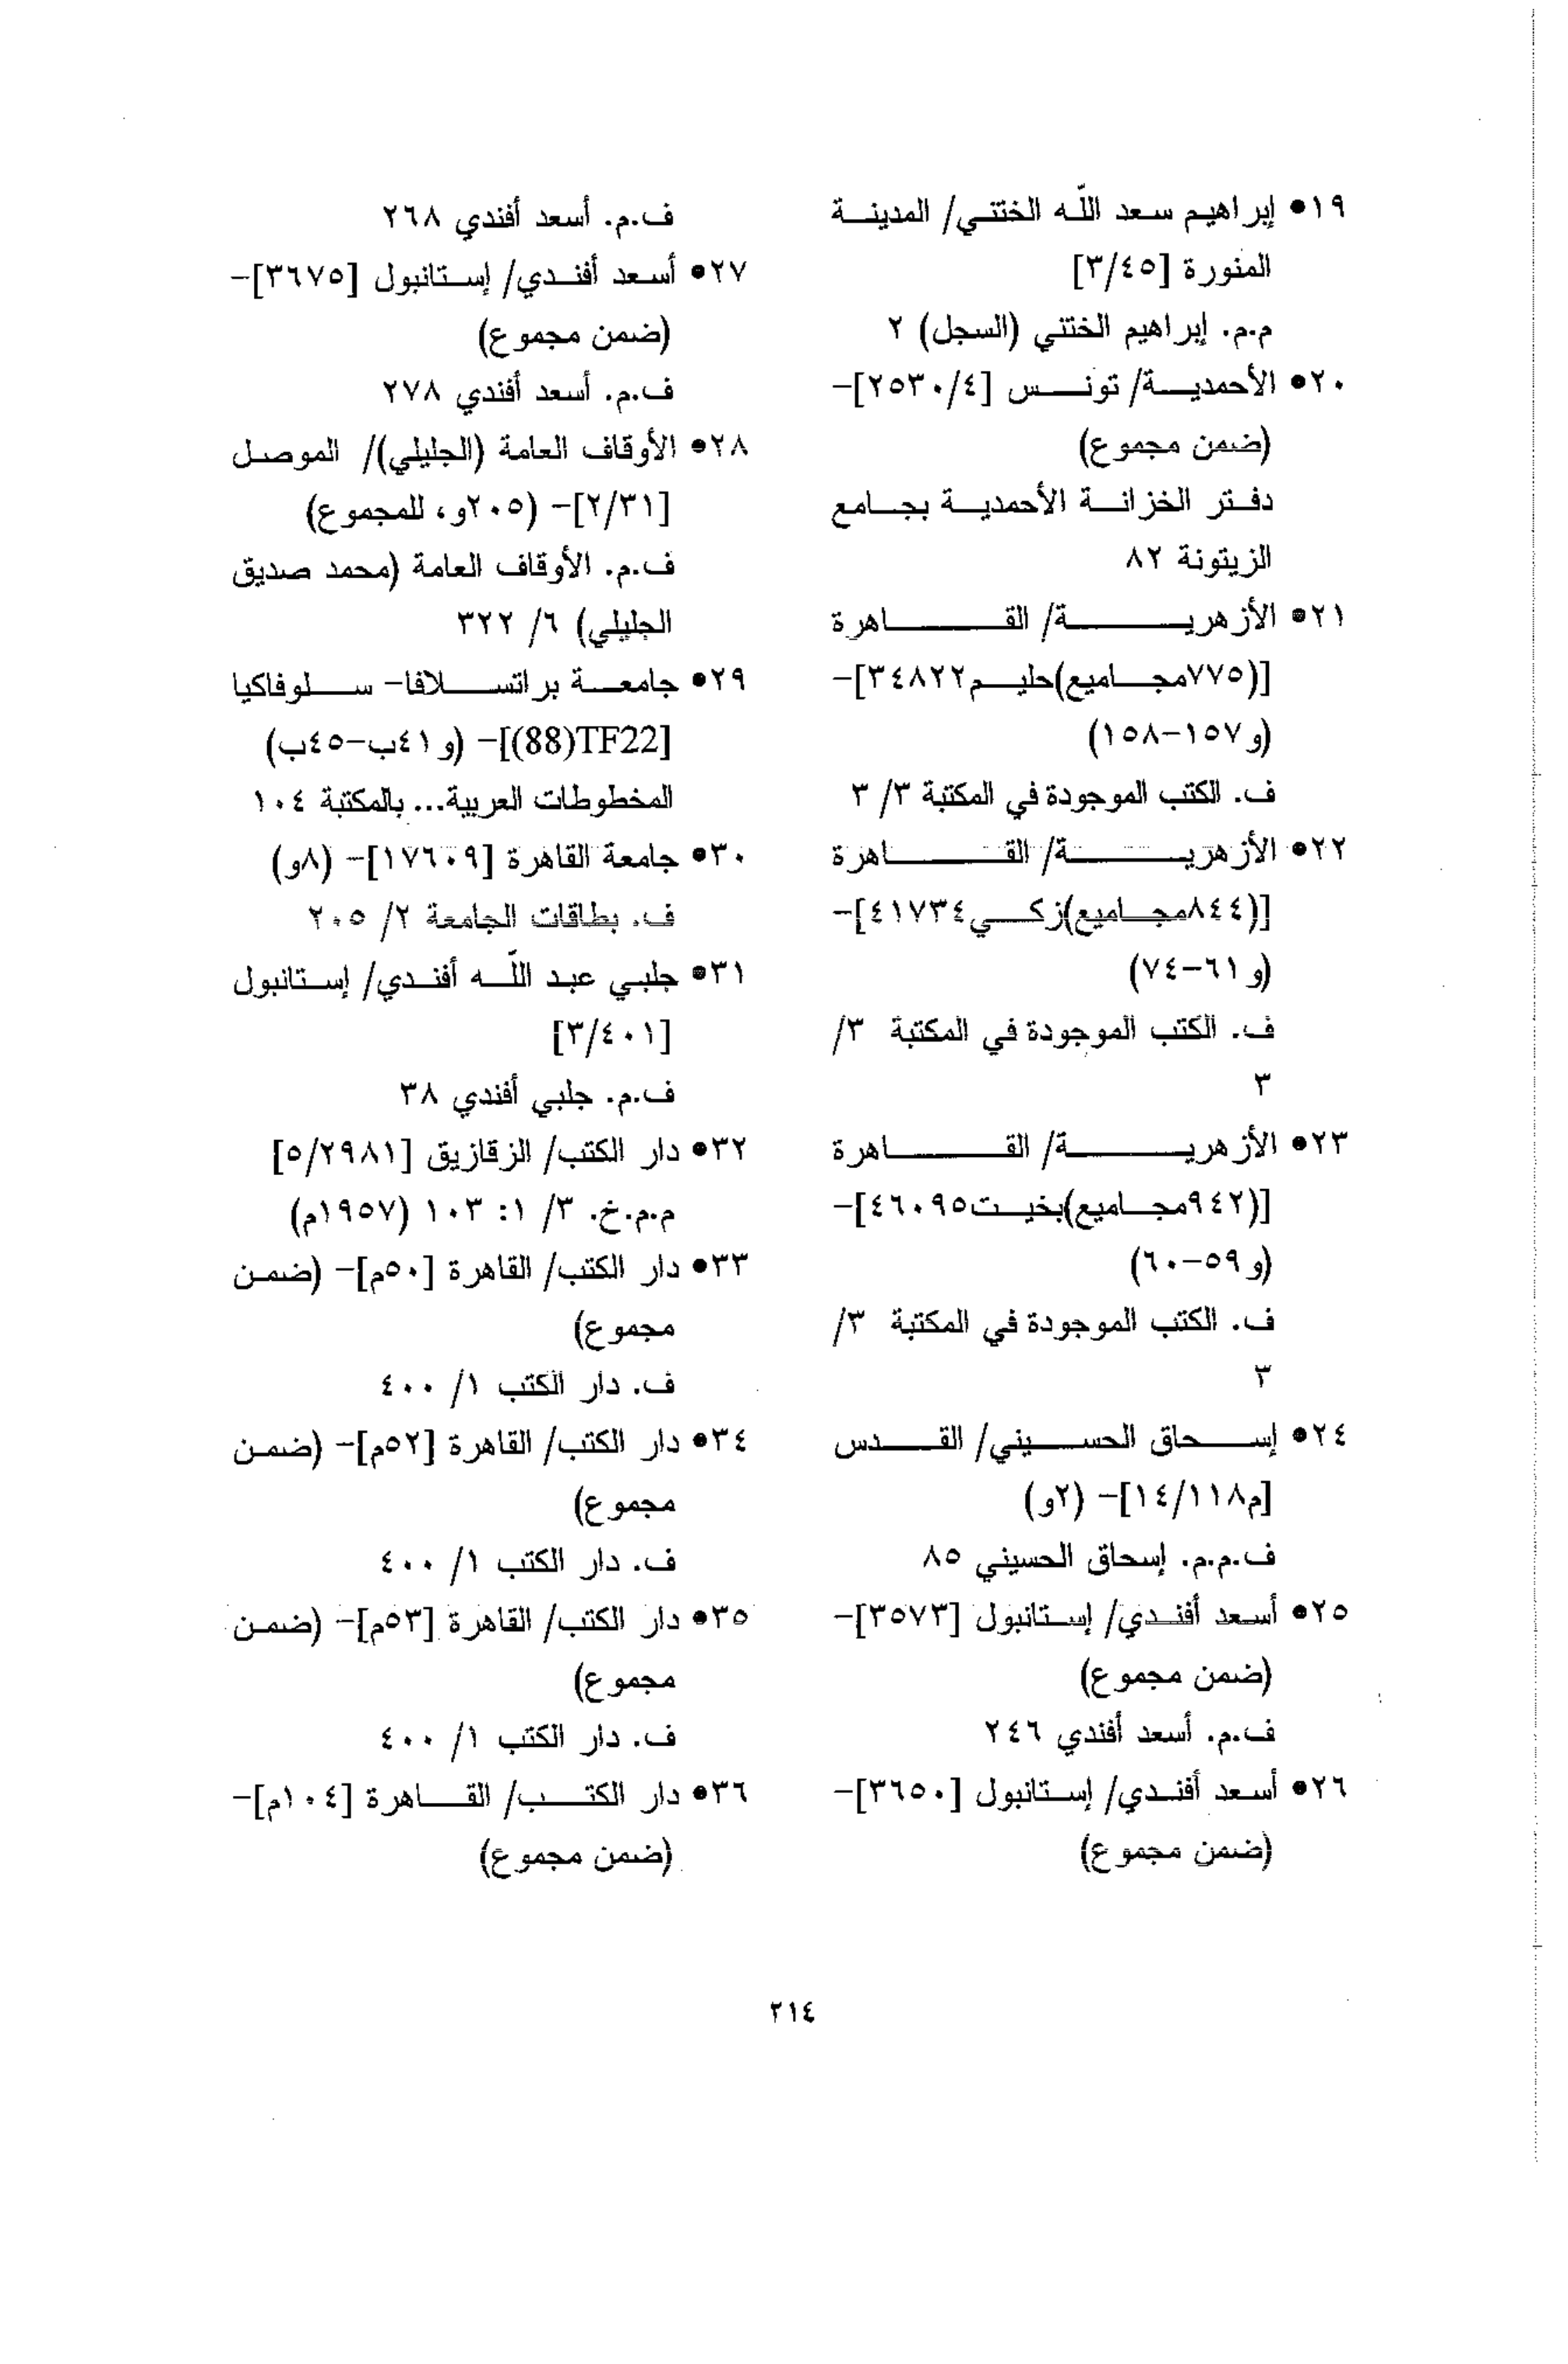 ١٩• إبراهيم سعد اللّه الختني/ المدينة
المنورة [٣/٤٥]
م.م. إبراهيم الختني (السجل) ٢
٢٠• الأحمدية/ تونس [٢٥٣٠/٤]-
(ضمن مجموع)
دفتر الخزانة الأحمدية بجامع
الزيتونة ٨٢
٢١• الأزهرية/ القاهرة
[(٧٧٥مجاميع)حليم٣٤٨٢٢]-
(و١٥٧-١٥٨)
ف. الكتب الموجودة في المكتبة ٣/ ٣
٢٢• الأزهرية/ القاهرة
[(٨٤٤مجاميع)زكي٤١٧٣٤]-
(و٦١-٧٤)
ف. الكتب الموجودة في المكتبة ٣/
٣
٢٣• الأزهرية/ القاهرة
[(٩٤٢مجاميع)بخيت٤٦٠٩٥]-
(و٥٩-٦٠)
ف. الكتب الموجودة في المكتبة ٣/
٣
٢٤• إسحاق الحسيني/ القدس
[م١٤/١١٨]- (٢و)
ف.م.م. إسحاق الحسيني ٨٥
٢٥• أسعد أفندي/ إستانبول [٣٥٧٣]-
(ضمن مجموع)
ف.م. أسعد أفندي ٢٤٦
٢٦• أسعد أفندي/ إستانبول [٣٦٥٠]-
(ضمن مجموع)
ف.م. أسعد أفندي ٢٦٨
٢٧• أسعد أفندي/ إستانبول [٣٦٧٥]-
(ضمن مجموع)
ف.م. أسعد أفندي ٢٧٨
٢٨• الأوقاف العامة (الجليلي)/ الموصل
[٢/٣١]- (٢٠٥و، للمجموع)
ف.م. الأوقاف العامة (محمد صديق
الجليلي) ٦/ ٣٢٢
٢٩• جامعة براتسلافا- سلوفاكيا
[TF22(88)]- (و٤١ب-٤٥ب)
المخطوطات العربية... بالمكتبة ١٠٤
٣٠• جامعة القاهرة [١٧٦٠٩]- (٨و)
ف. بطاقات الجامعة ٢/ ٢٠٥
٣١• جلبي عبد اللّه أفندي/ إستانبول
[٣/٤٠١]
ف.م. جلبي أفندي ٣٨
٣٢• دار الكتب/ الزقازيق [٥/٢٩٨١]
م.م.خ. ٣/ ١: ١٠٣ (١٩٥٧م)
٣٣• دار الكتب/ القاهرة [٥٠م]- (ضمن
مجموع)
ف. دار الكتب ١/ ٤٠٠
٣٤• دار الكتب/ القاهرة [٥٢م]- (ضمن
مجموع)
ف. دار الكتب ١/ ٤٠٠
٣٥• دار الكتب/ القاهرة [٥٣م]- (ضمن
مجموع)
ف. دار الكتب ١/ ٤٠٠
٣٦• دار الكتب/ القاهرة [١٠٤م]-
(ضمن مجموع)
٢١٤